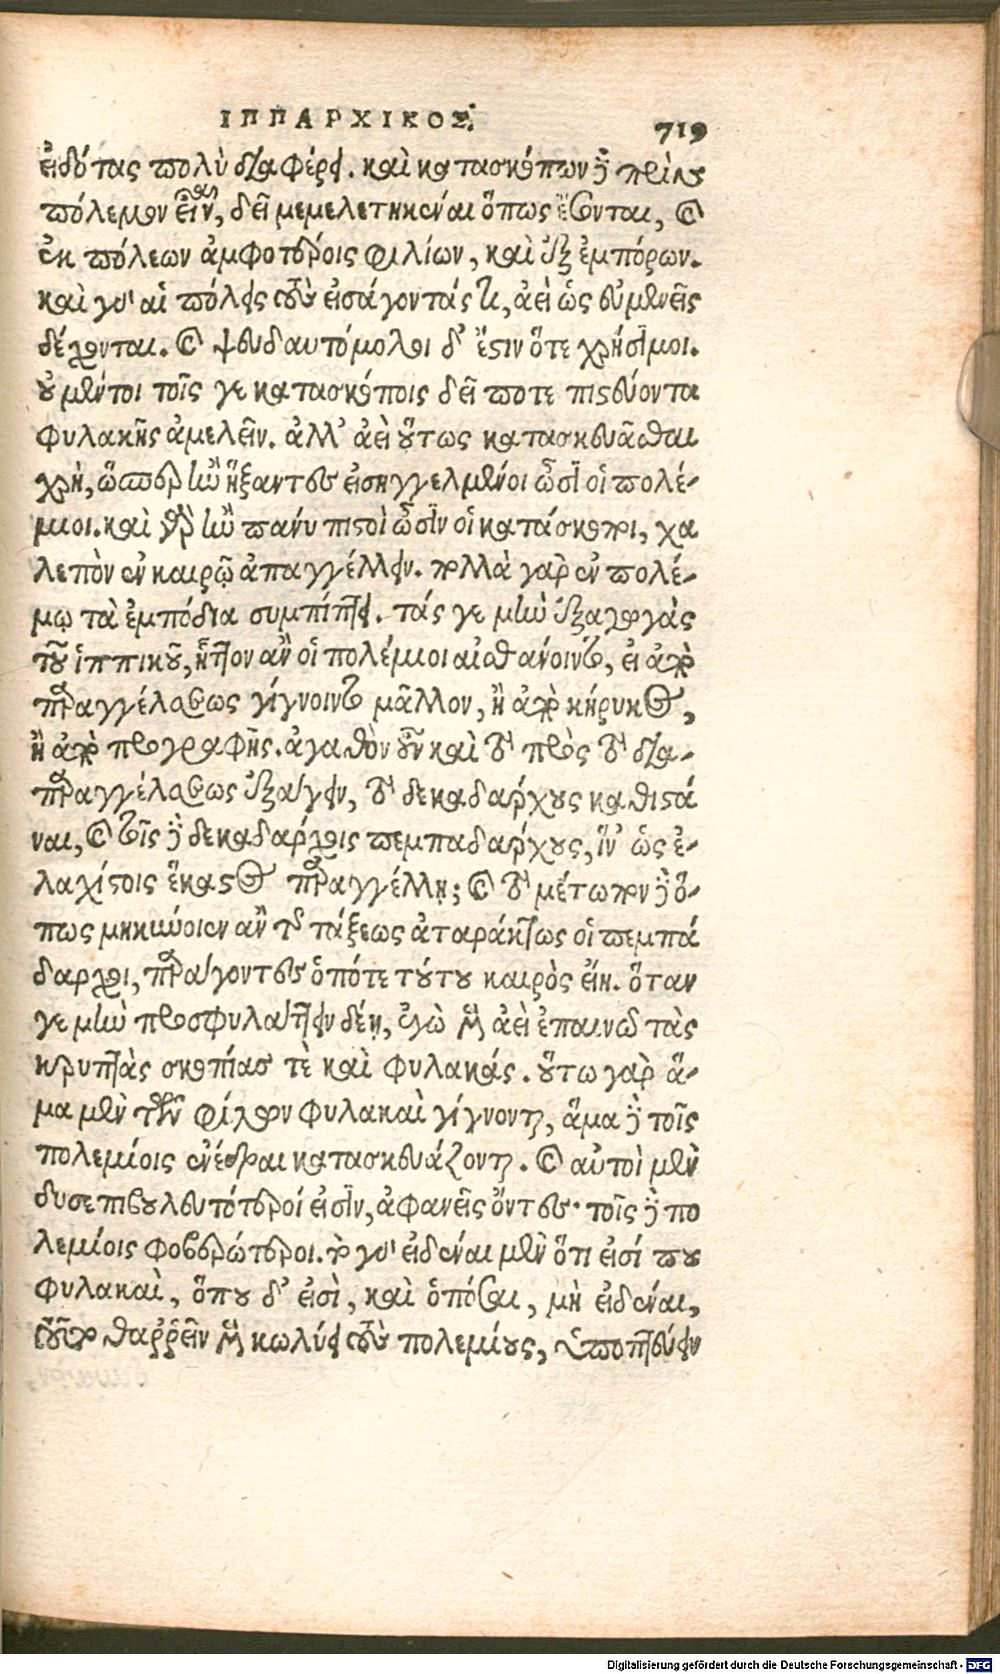 ΙΠΠΑΡΧΙΚΟΣ.
719
εἰδότας πολὺ διαφέρει. καὶ κατασκόπων δὲ πρὶν
πόλεμον εἶναι, δεῖ μεμελετηκέναι ὅπως ἔσονται, καὶ
ἐκ πόλεων ἀμφοτέροις φιλίων, καὶ ἐξ ἐμπόρων.
καὶ γὰρ αἱ πόλεις τοὺς εἰσάγοντάς τι, ἀεὶ ὡς εὐμενεῖς
δέχονται. καὶ ψευδαυτόμολοι δ' ἔστιν ὅτε χρήσιμοι.
οὐ μέντοι τοῖς γε κατασκόποις δεῖ ποτε πιστεύοντα
φυλακῆς ἀμελεῖν. ἀλλ' ἀεὶ οὕτως κατασκευᾶσθαι
χρὴ, ὥσπερ ἢν ἥξαντες εἰσηγγελμένοι ὦσιν οἱ πολέ-
μιοι. καὶ γὰρ ἢν πάνυ πιστοὶ ὦσιν οἱ κατάσκοποι, χα
λεπὸν ἐν καιρῷ ἀπαγγέλλειν. πολλὰ γὰρ ἐν πολέ-
μῳ τὰ ἐμπόδια συμπίπτει. τάς γε μὴν ἐξαγωγὰς
τοῦ ἱππικοῦ, ἧττον ἂν οἱ πολέμιοι αἰσθάνοιντο, εἰ ἀπὸ
παραγγέλσεως γίγνοιντο μᾶλλον, ἢ ἀπὸ κήρυκος,
ἢ ἀπὸ προγραφῆς. ἀγαθὸν οὖν καὶ τὸ πρὸς τὸ δια-
παραγγέλσεως ἐξάγειν, τὸ δεκαδάρχους καθιστά
ναι, καὶ τοῖς δὲ δεκαδάρχοις πεμπαδάρχους, ἵν' ὡς ἐ-
λαχίστοις ἕκαστος παραγγέλλῃ; καὶ τὸ μέτωπον δὲ ὅ-
πως μηκύνοιεν ἂν τῆς τάξεως ἀταράκτως οἱ πεμπά
δαρχοι, παράγοντες ὁπότε τούτου καιρὸς εἴη. ὅταν
γε μὴν προσφυλάττειν δέῃ, ἐγὼ μὲν ἀεὶ ἐπαινῶ τὰς
κρυπτὰς σκοπιάς τὲ καὶ φυλακάς. οὕτω γὰρ ἅ-
μα μὲν τῶν φίλων φυλακαὶ γίγνονται, ἅμα δὲ τοῖς
πολεμίοις ἐνέδραι κατασκευάζονται. καὶ αὐτοὶ μὲν
δυσεπιβουλευτότεροί εἰσιν, ἀφανεῖς ὄντες· τοῖς δὲ πο
λεμίοις φοβερώτεροι. τὸ γὰρ εἰδέναι μὲν ὅτι εἰσί που
φυλακαὶ, ὅπου δ' εἰσὶ, καὶ ὁπόσαι, μὴ εἰδέναι,
τοῦτο θαῤῥεῖν μὲν κωλύει τοὺς πολεμίους, ὑποπτεύειν
Digitalisierung gefördert durch die Deutsche Forschungsgemeinschaft - DFG